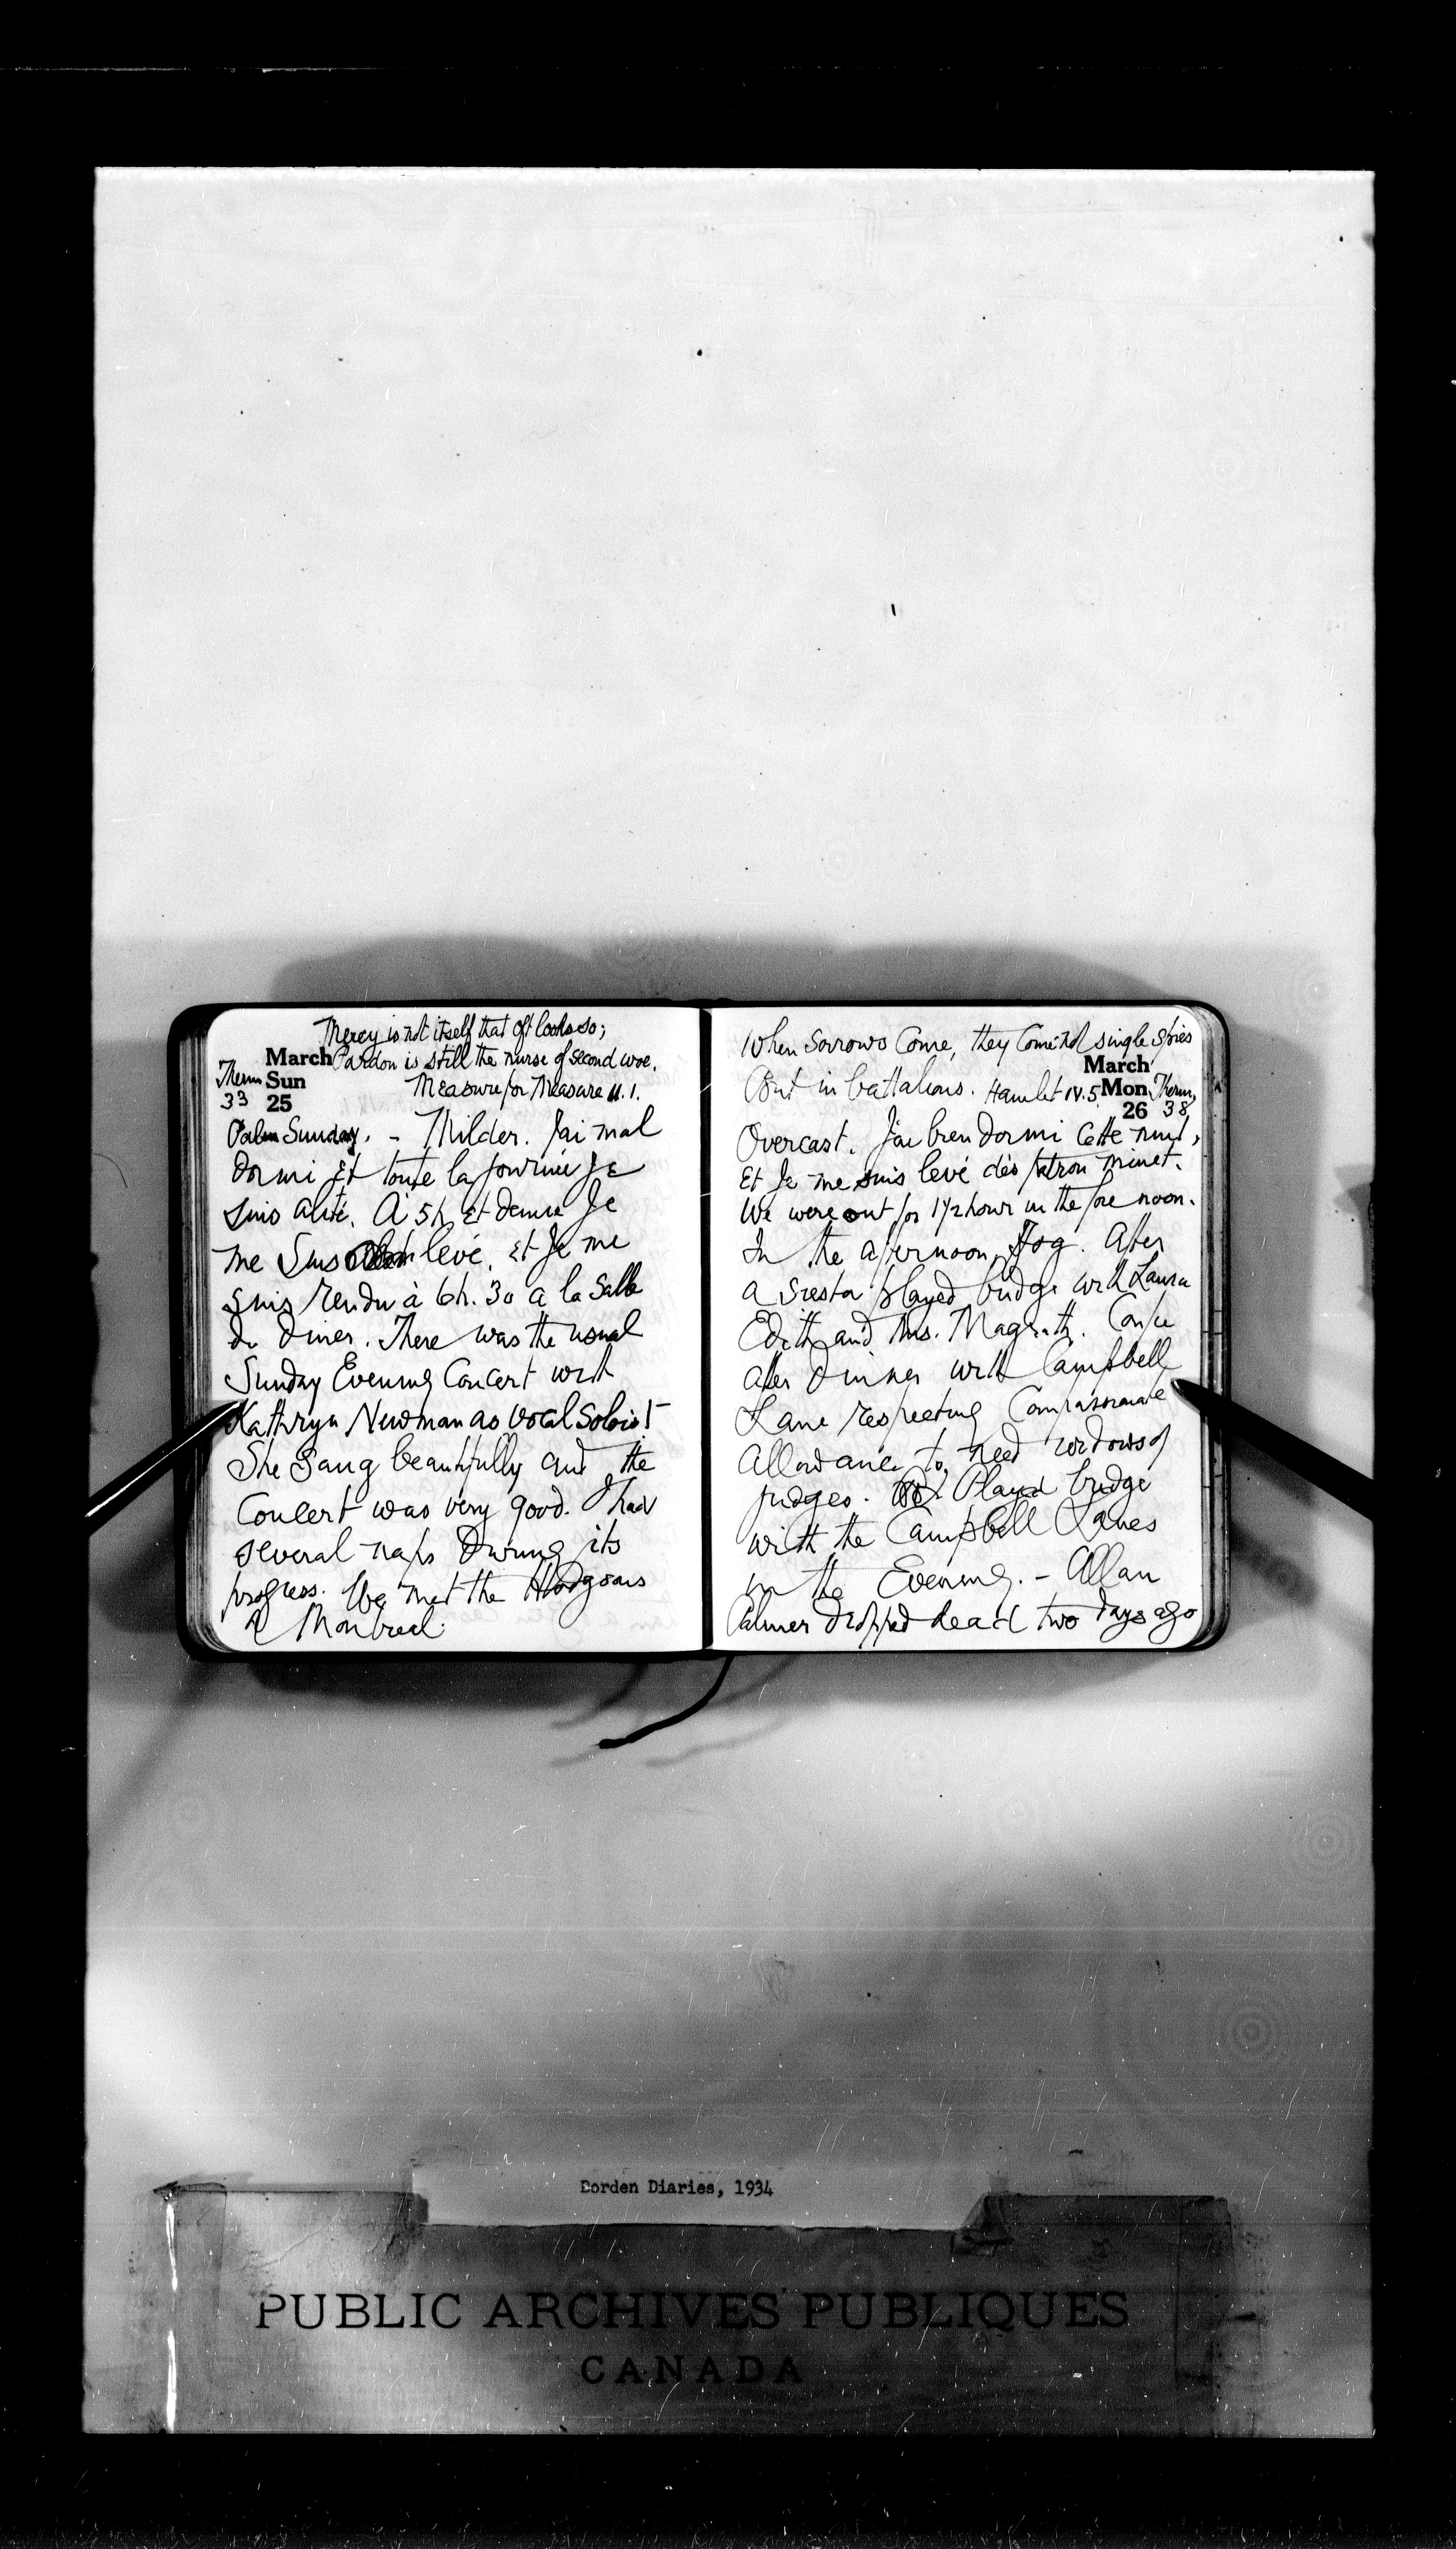 Mercy is not itself that oft looks so;
March Pardon is still the nurse of second woe.
Therm Sun Measure for Measure II. 1.
33 25
Palm Sunday. - Milder. J'ai mal
dormi et toute la journée je
suis alité. À 5h et demie je
me suis levé. et je me
suis rendu à 6h. 30 a la salle
du diner. There was the usual
Sunday Evening Concert with
Kathryn Newman as vocal soloist
She sang beautifully and the
Concert was very good. I had
several naps during its
progress. We met the Hodgsons
of Montreal.
When sorrows come, they come not single spies
March
But in battalions. Hamlet IV.5 Mon Therm,
26 38
Overcast. J'ai bien dormi cette nuit,
et je me suis levé dès patron minet.
We were out for 1 1/2 hour in the fore noon.
In the afternoon, fog. After
a siesta played bridge with Laura
Edith and Mrs. Magrath. Confce
after dinner with Campbell
Lane respecting Compassionate
allowance to need widows of
judges. Played bridge
with the Campbell Lanes
in the Evening. - Allan
Palmer dropped dead two days ago
Borden Diaries, 1934
PUBLIC ARCHIVES PUBLIQUES
CANADA